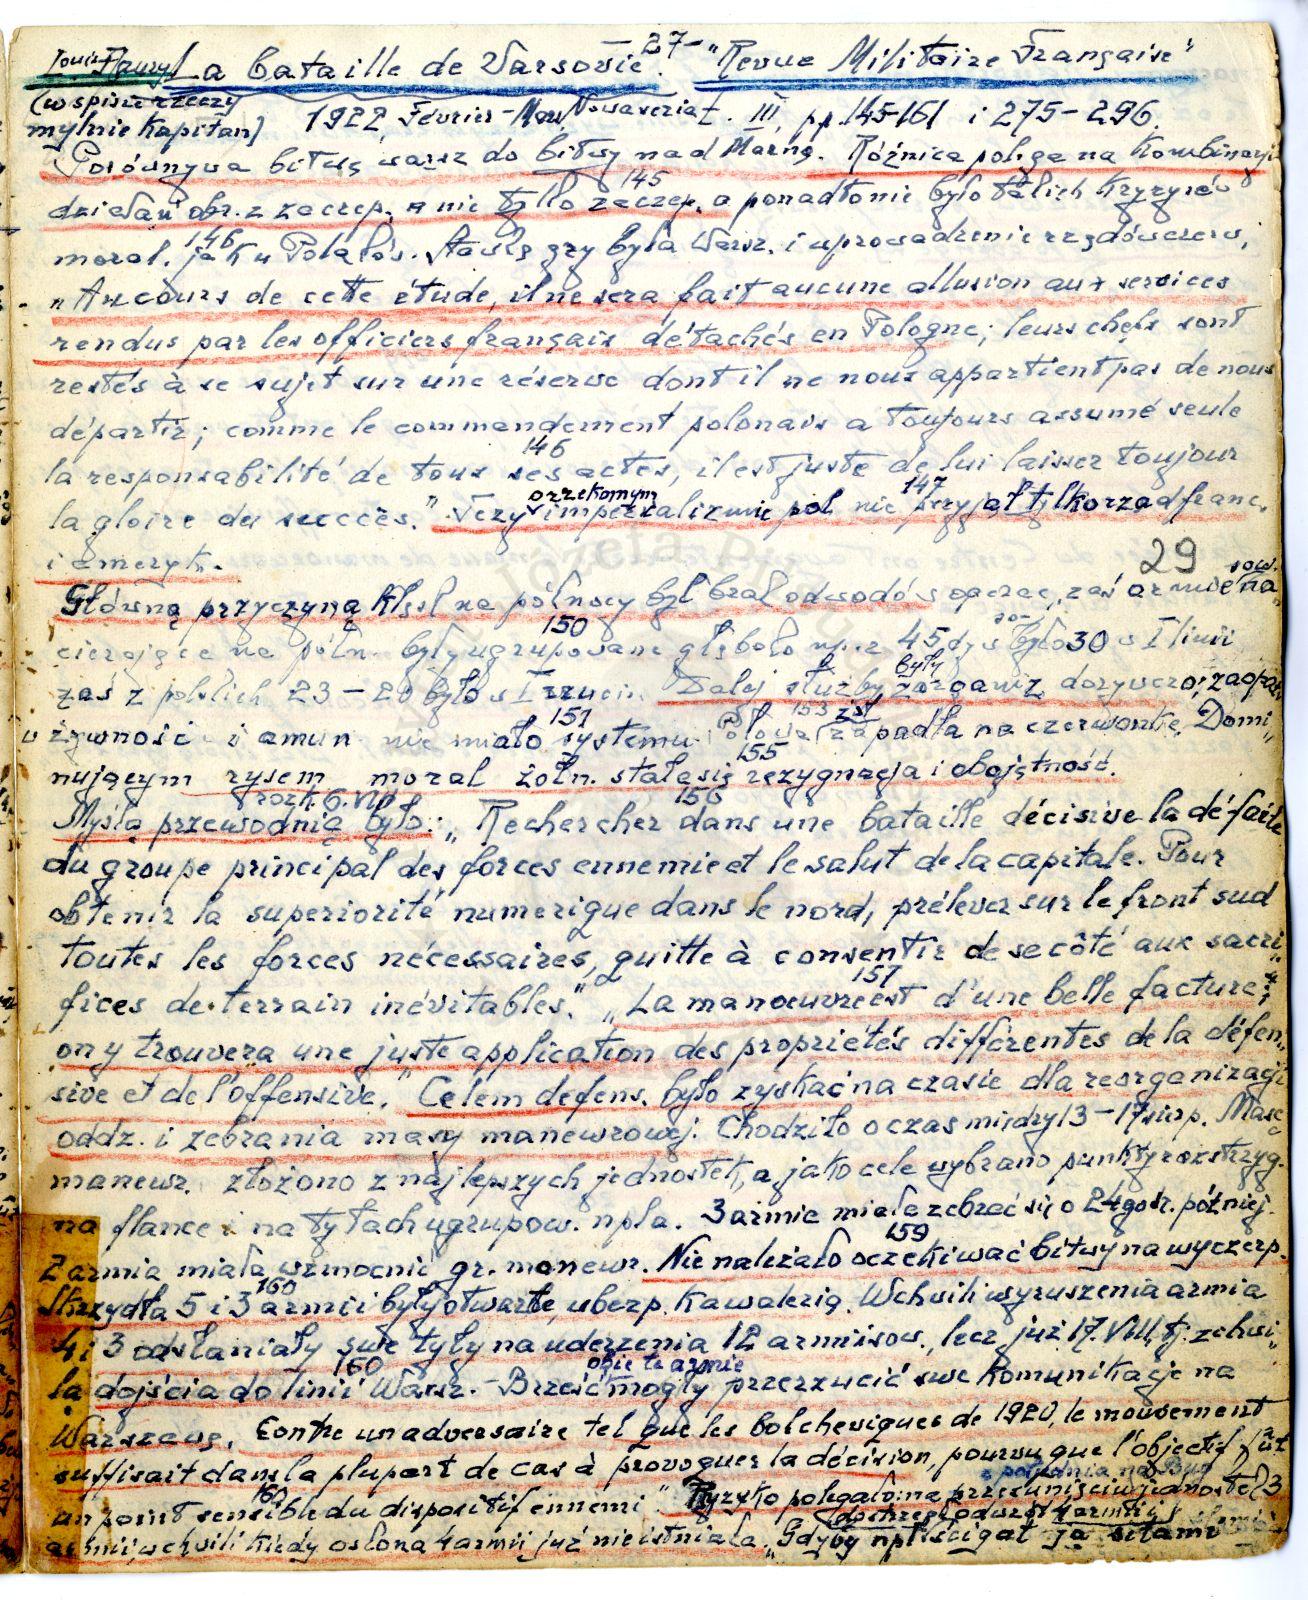 -27-
Louis Faury La bataille de Varsovie. "Revue Militaire Française"
(w spisie rzeczy
mylnie Kapitan) 1922, Février-Mars, Nowa seria t. III, pp. 145-161 i 275-296.
Porównywa bitwę warsz do bitwy nad Marną. Różnica polega na kombinacji
145
działań obr. z zaczep, a nie tylko zaczep, a ponadto nie było takich kryzysów
146
moral. jak u Polaków. Stawką gry była Warsz. i uprowadzenie rządów czerw,
"Au cours de cette étude, il ne sera fait aucune allusion aux services
rendus par les officiers français détachés en Pologne; leurs chefs sont
restés à se sujet sur une réserve dont il ne nous appartient pas de nous
départir; comme le commandement polonais a toujours assumé seule
146
la responsabilité de tous ses actes, il est juste de lui laisser toujour
rzekomym 147
la gloire du succès." Tezy imperializmie pol nie przyjął tylko rząd franc.
i ameryk.
29
Główną przyczyną klęsk na północy był brak odwodów operac, zaś armie sow. na
150
cierające na półn. były ugrupowane głęboko np. z 45 dys było 30 w I linii
były
zaś z polskich 23 - 20 było w I rzucie. Dalej służby zorganiz dorywczo, zaopatr
151 153
żywność i amun nie miało systemu. Połowa zapadła na czerwonkę. Domi"
155
nującym rysem moral żołn. stała się rezygnacja i obojętność.
rozk. 6.VIII 156
Myślą przewodnią było: "Rechercher dans une bataille décisive la défaite
du groupe principal des forces ennemie et le salut de la capitale. Pour
obtenir la superiorité numerique dans le nord, prélever sur le front sud
toutes les forces nécessaires, quitte à consentir de se côté aux sacri"
157
fices de terrain inévitables." "La manoeuvre est d'une belle facture:
on y trouvera une juste application des propriétés différentes de la défen"
sive et de l'offensive." Celem defens. było zyskać na czasie dla reorganizacji
oddz. i zebrania masy manewrowej. Chodziło o czas między 13-17 sierp. Masę
manewr. złożono z najlepszych jednostek, a jako cele wybrano punkty rozstrzyg.
na flance i na tyłach ugrupow. npla. 3 armie miała zebrać się o 24 godz. później.
159
2 armia miała wzmocnić gr. manewr. Nie należało oczekiwać bitwy na wyczerp.
160
Skrzydła 5 i 3 armii były otwarte, ubezp. kawalerią. W chwili wyruszenia armia
4 i 3 odsłaniały swe tyły na uderzenia 12 armii sow., lecz już 17.VIII, tj. z chwi"
160 obie te armie
lą dojścia do linii Warsz. - Brześć mogły przerzucić swe komunikacje na
Warszawę. Contre un adversaire tel que les bolcheviques de 1920, le mouvement
suffisait dans la plupart de cas à provoquer la décision, pourvu que l'objectif fût
160 z południa na Bug
un point sensible du dispositif ennemi." Ryzyko polegało na przesunięciu jednostek 3
dostrzegł odwrót 4 armii i
armii, w chwili kiedy osłona 4 armii już nie istniała. "Gdyby npl ścigał ją siłami